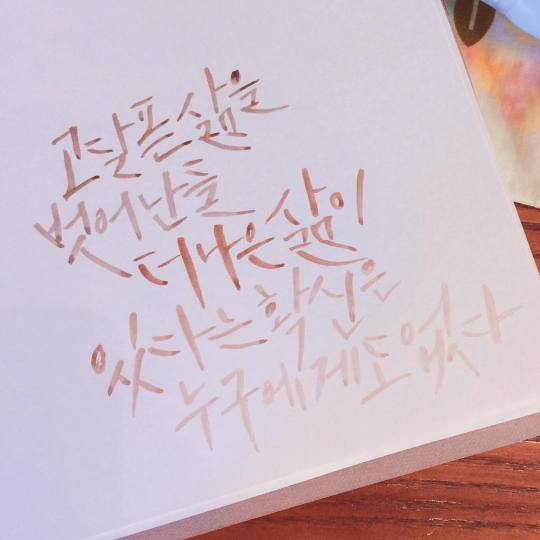 고달픈 삶을
벗어난들
더 나은 삶이
있다는 확신은
누구에게도 없다